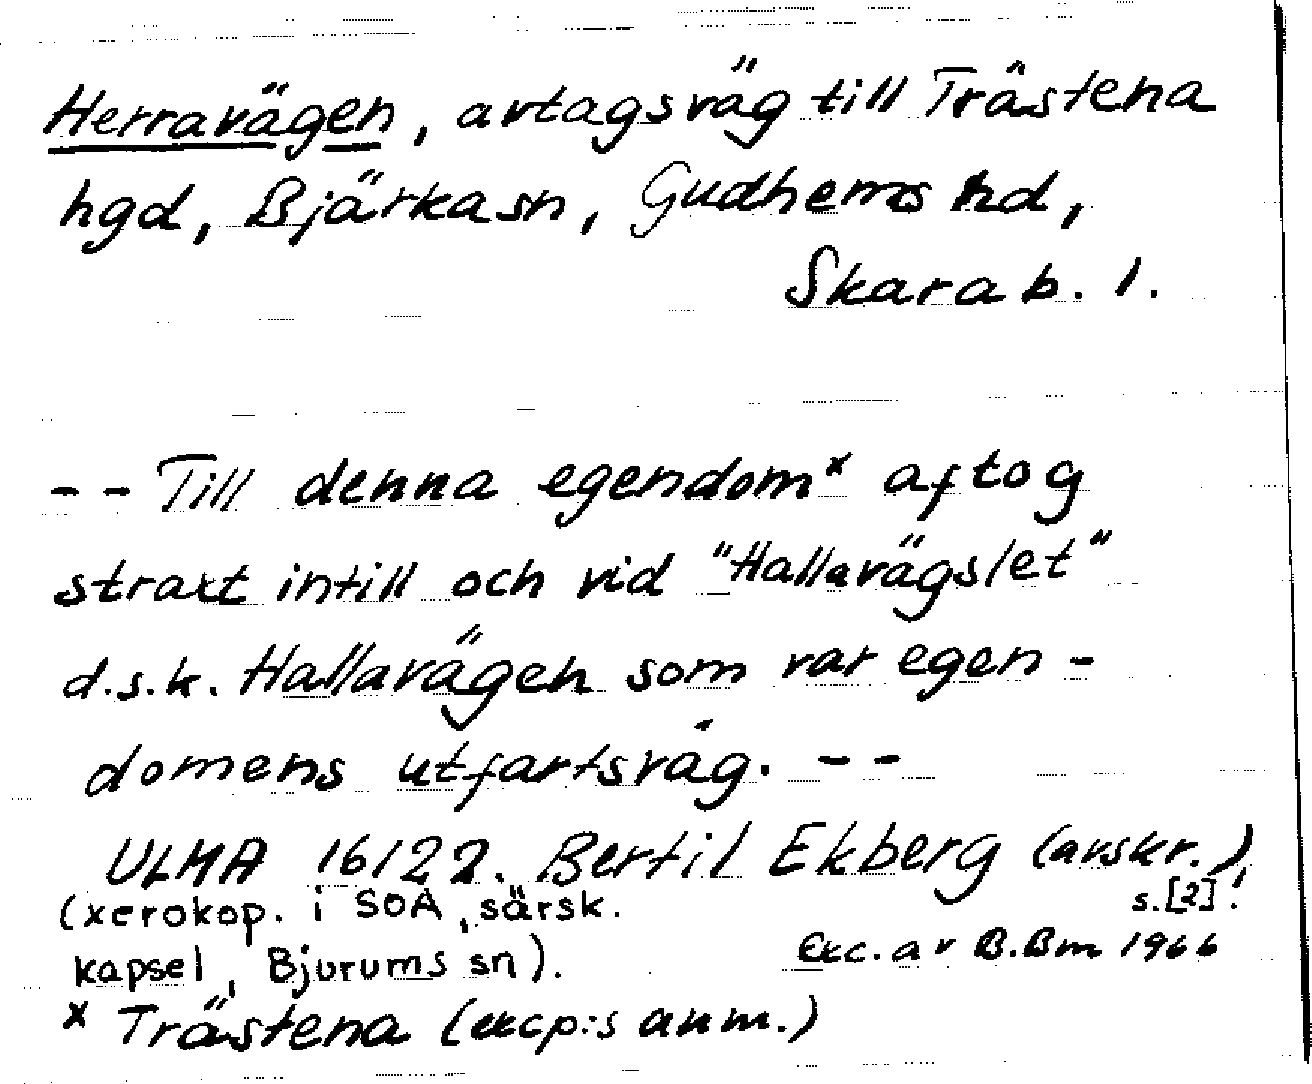 Herravägen, avtagsväg till Trästena
hgd, Bjärka sn, Gudhems hd,
Skarab. l.
-- Till denna egendom x aftog
straxt intill och vid "Hallavägslet"
d.s.k. Hallavägen som var egen-
domens utfartsväg. --
ULMA 16122. Bertil Ekberg (avskr.)
(xerokop. i SOA, särsk. s.[2]!
kapsel, Bjurums sn). Exc. av B.Bm 1966
x Trästena (excp:s anm.)